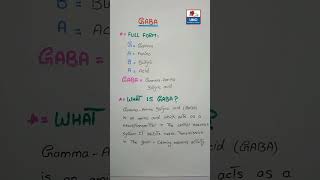 GABA
* = FULL FORM:-
G = Gamma
A = Amino
B = Butyric
A = Acid
GABA = Gamma-Amino
Butyric acid
* = WHAT IS GABA?
Gamma-Amino Butyric acid (GABA)
is an amino acid which acts as a
neurotransmitter in the central nervous
system. It inhibits nerve transmission
in the brain, calming nervous activity.